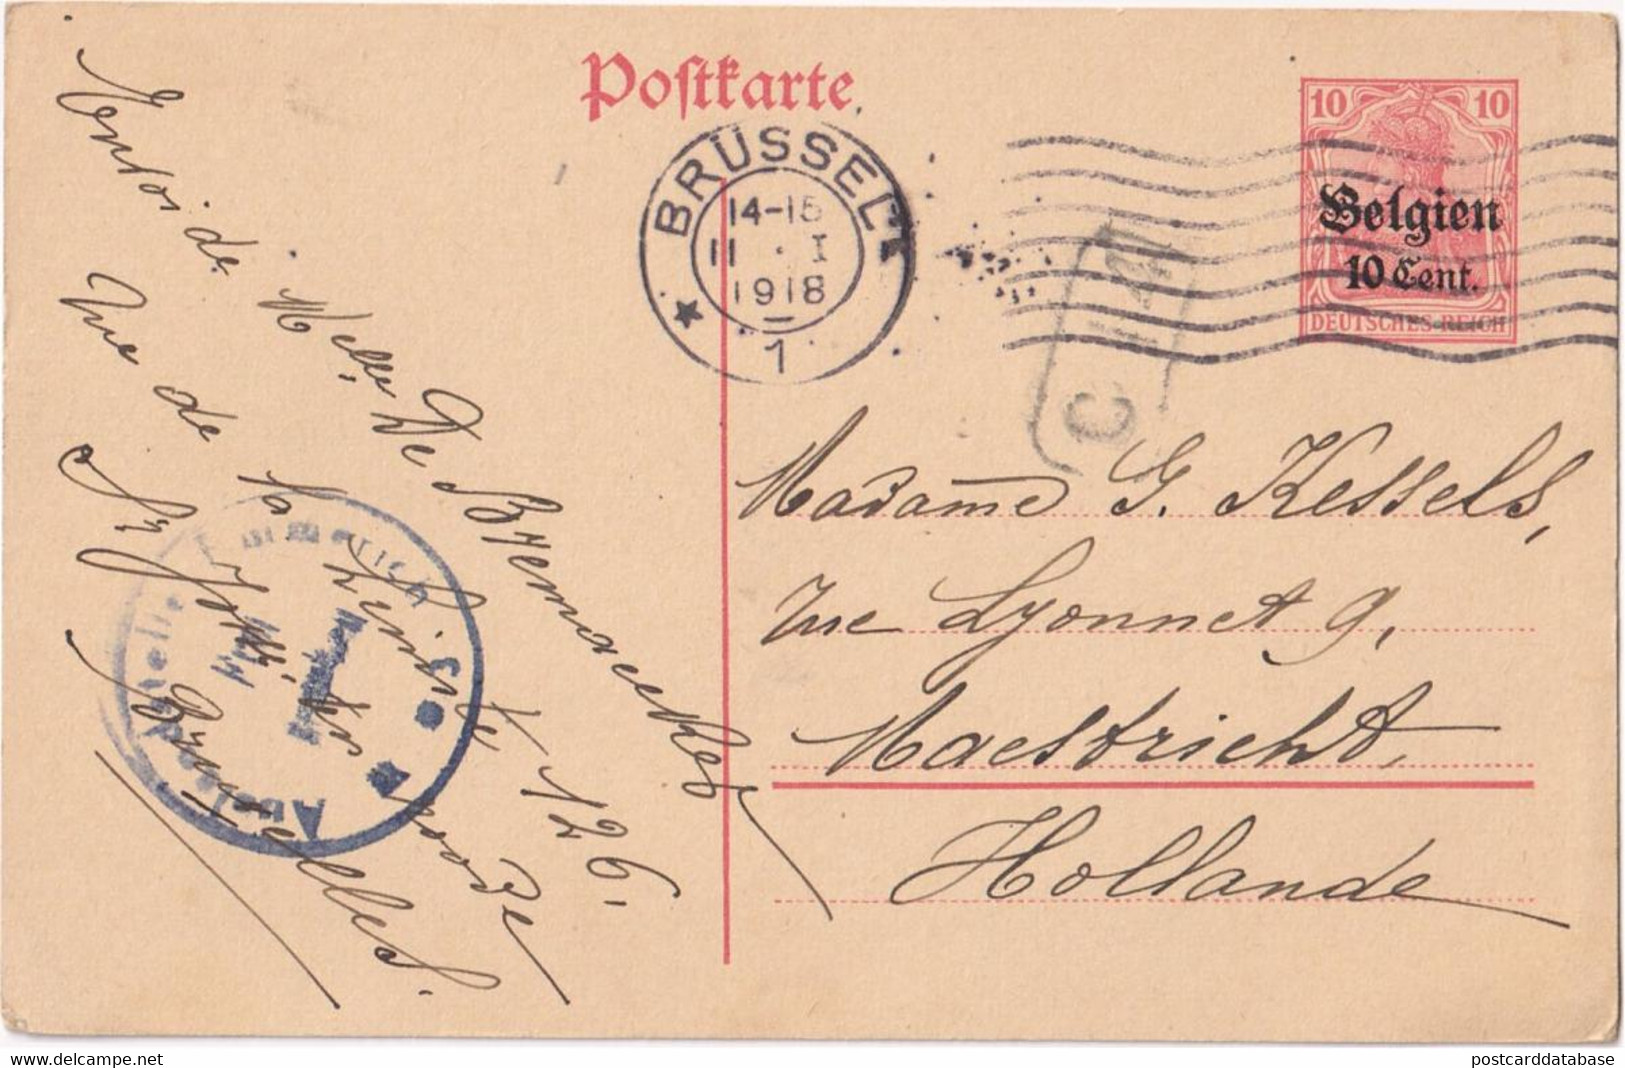 Postkarte
10 10
Belgien
10 Cent.
DEUTSCHES REICH
BRÜSSEL
14-15
11 . I
1918
1
Envoi de Melle De Braemaecker
rue de la Limite 126.
St Josse
Bruxelles.
Madame G. Kessels,
rue Lyonnet 9,
Maestricht
Hollande
postcarddatabase